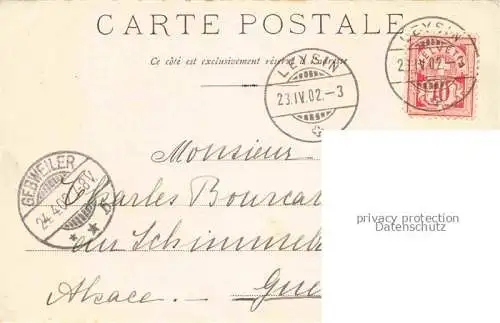 CARTE POSTALE
Ce côté est exclusivement réservé à l'adresse
LEYSIN
23.IV.02.–3
LEYSIN
23.IV.02.
HELVETIA
10
GEBWEILER
24.4.02
Monsieur
Charles Bourcar
au Schimmel
Alsace. – Gue
privacy protection
Datenschutz